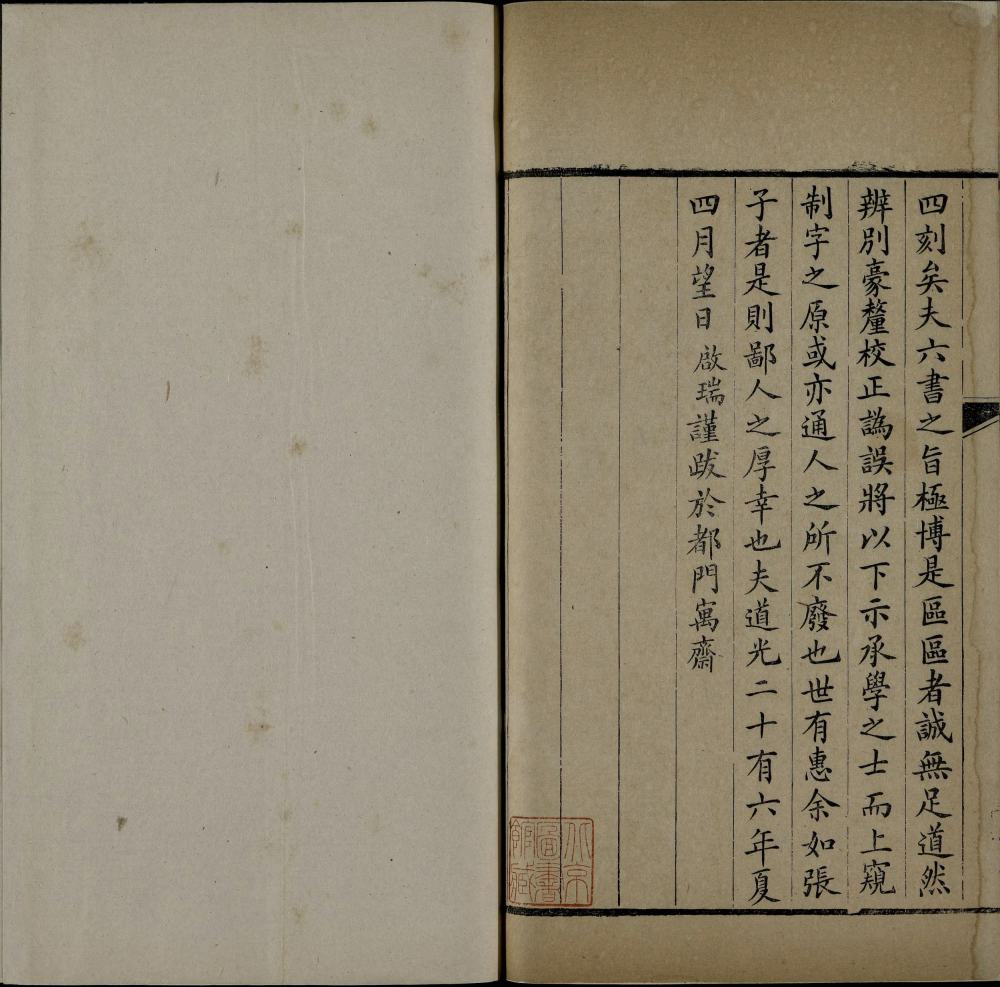 四刻矣夫六書之旨極博是區區者誠無足道然
辨別豪釐校正譌誤將以下示承學之士而上窺
制字之原或亦通人之所不廢也世有惠余如張
子者是則鄙人之厚幸也夫道光二十有六年夏
四月望日啟瑞謹跋於都門寓齋
北京
圖書
館藏